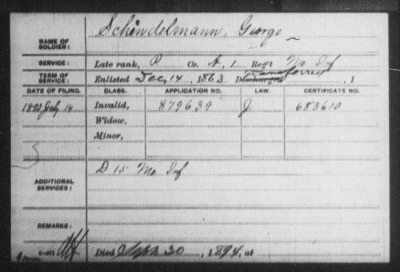 NAME OF SOLDIER: Schindelmann, George
SERVICE: Late rank, P Co. A, 1 Reg't Mo. Inf
TERM OF SERVICE: Enlisted Dec. 14, 1863. Discharged Transferred, 1
DATE OF FILING. CLASS. APPLICATION NO. LAW. CERTIFICATE NO.
1890 July 14 Invalid, 879639 J. 683610
Widow,
Minor,
ADDITIONAL SERVICES: D 15 Mo. Inf
REMARKS:
Died Sept. 30, 1894, at